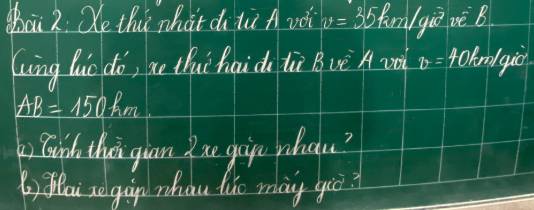 Bài 2: Xe thứ nhất đi từ A với v = 35km/giờ về B.
Cùng lúc đó, xe thứ hai đi từ B về A với v = 40km/giờ
AB = 150km.
a) Tính thời gian 2 xe gặp nhau?
b) Hai xe gặp nhau lúc mấy giờ?